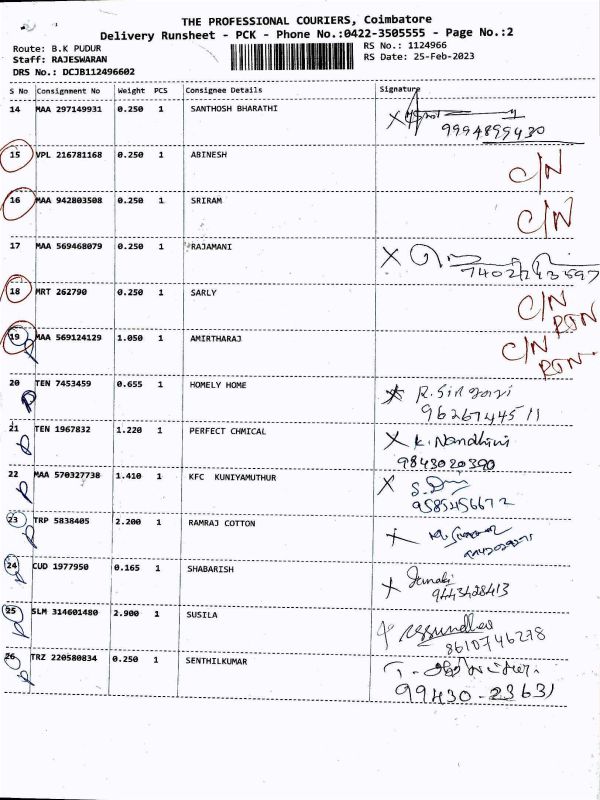 THE PROFESSIONAL COURIERS, Coimbatore
Delivery Runsheet - PCK - Phone No.:0422-3505555 - Page No.:2
Route: B.K PUDUR RS No.: 1124966
Staff: RAJESWARAN RS Date: 25-Feb-2023
DRS No.: DCJB112496602
S No Consignment No Weight PCS Consignee Details Signature
14 MAA 297149931 0.250 1 SANTHOSH BHARATHI
9994899430
15 VPL 216781168 0.250 1 ABINESH C/N
16 MAA 942803508 0.250 1 SRIRAM C/N
17 MAA 569468079 0.250 1 RAJAMANI
18 MRT 262790 0.250 1 SARLY C/N
RTN
19 MAA 569124129 1.050 1 AMIRTHARAJ C/N
RTN
20 TEN 7453459 0.655 1 HOMELY HOME
9626744511
21 TEN 1967832 1.220 1 PERFECT CHMICAL K. Nandhini
9843020390
22 MAA 570327738 1.410 1 KFC KUNIYAMUTHUR
9585456672
23 TRP 5838405 2.200 1 RAMRAJ COTTON
24 CUD 1977950 0.165 1 SHABARISH Janaki
9443428413
25 SLM 314601480 2.900 1 SUSILA
8610746278
26 TRZ 220580834 0.250 1 SENTHILKUMAR
99430-23631